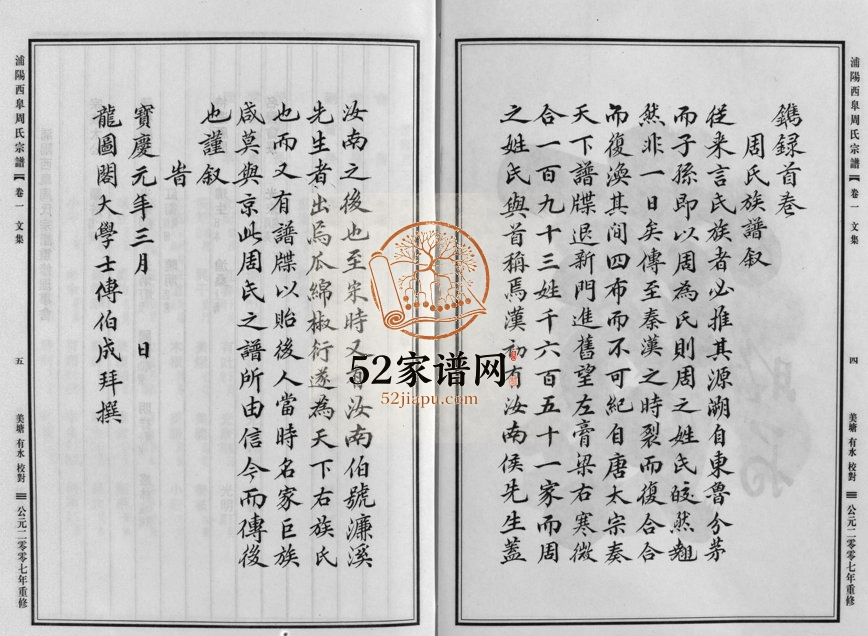 浦陽西皐周氏宗譜 卷一 文集
四
美塘 有水 校對
公元二零零七年重修
鐫録首卷
周氏族譜叙
從来言氏族者必推其源溯自東魯分茅
而子孫即以周為氏則周之姓氏皎然
然非一日矣傳至秦漢之時裂而復合合
而復渙其间四布而不可紀自唐太宗奏
天下譜牒退新門進舊望左膏梁右寒微
合一百九十三姓千六百五十一家而周
之姓氏與首稱焉漢初有汝南侯先生蓋
汝南之後也至宋時又有汝南伯號濂溪
先生者出焉瓜綿椒衍遂為天下右族氏
也而又有譜牒以貽後人當時名家巨族
咸莫與京此周氏之譜所由信今而傳後
也謹叙
旹
寶慶元年三月 日
龍圖閣大學士傅伯成拜撰
浦陽西皐周氏宗譜 卷一 文集
五
美塘 有水 校對
公元二零零七年重修
52家谱网
52jiapu.com